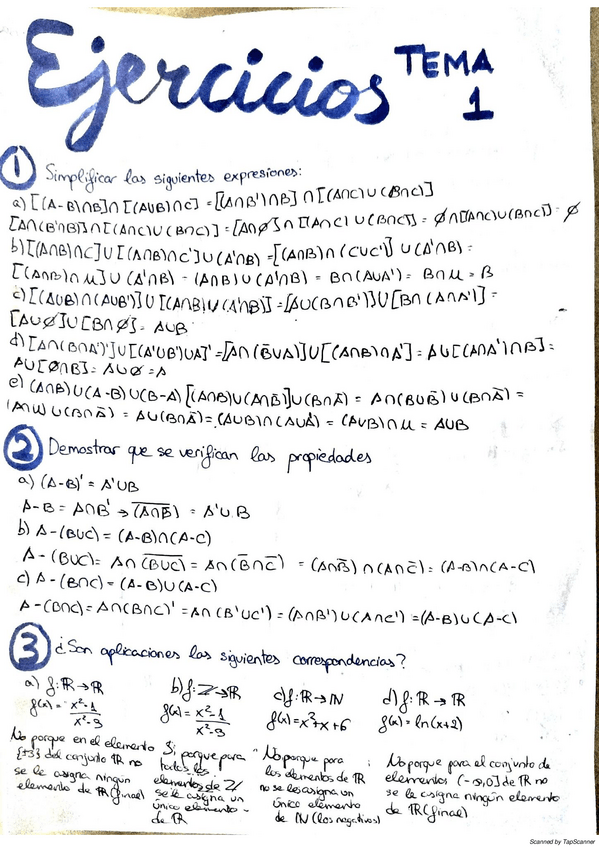 Ejercicios TEMA 1
1 Simplificar las siguientes expresiones:
a) [(A-B)∩B]∩[(A∪B)∩C] = [(A∩B')∩B]∩[(A∩C)∪(B∩C)]
[A∩(B'∩B)]∩[(A∩C)∪(B∩C)] = [A∩∅]∩[(A∩C)∪(B∩C)] = ∅∩[(A∩C)∪(B∩C)] = ∅
b) [(A∩B)∩C]∪[(A∩B)∩C']∪(A'∩B) = [(A∩B)∩(C∪C')]∪(A'∩B) =
[(A∩B)∩U]∪(A'∩B) = (A∩B)∪(A'∩B) = B∩(A∪A') = B∩U = B
c) [(A∪B)∩(A∪B')]∪[(A∩B)∪(A'∩B)] = [A∪(B∩B')]∪[B∩(A∩A')] =
[A∪∅]∪[B∩∅] = A∪B
d) [A∩(B∩A')']∪[(A'∪B')∪A]' = [A∩(B̄∪A)]∪[(A∩B)∩A'] = A∪[(A∩A')∩B] =
A∪[∅∩B] = A∪∅ = A
e) (A∩B)∪(A-B)∪(B-A) [(A∩B)∪(A∩B̄)]∪(B∩Ā) = A∩(B∪B̄)∪(B∩Ā) =
(A∩U)∪(B∩Ā) = A∪(B∩Ā) = (A∪B)∩(A∪Ā) = (A∪B)∩U = A∪B
2 Demostrar que se verifican las propiedades
a) (A-B)' = A'∪B
A-B = A∩B' → (A∩B̄)‾ = A'∪B
b) A-(B∪C) = (A-B)∩(A-C)
A-(B∪C) = A∩(B∪C)‾ = A∩(B̄∩C̄) = (A∩B̄)∩(A∩C̄) = (A-B)∩(A-C)
c) A-(B∩C) = (A-B)∪(A-C)
A-(B∩C) = A∩(B∩C)' = A∩(B'∪C') = (A∩B')∪(A∩C') = (A-B)∪(A-C)
3 ¿Son aplicaciones las siguientes correspondencias?
a) f: ℝ→ℝ
f(x) = x²-1/x²-3
No porque en el elemento
{±3} del conjunto ℝ no
se le asigna ningún
elemento de ℝ (final)
b) f: ℤ→ℝ
f(x) = x²-1/x²-3
Si, porque para
todos los
elementos de ℤ
se le asigna un
único elemento
de ℝ
c) f: ℝ→ℕ
f(x) = x³+x+6
No porque para
los elementos de ℝ
no se les asigna un
único elemento
de ℕ (los negativos)
d) f: ℝ→ℝ
f(x) = ln(x+2)
No porque para el conjunto de
elementos (-∞,0] de ℝ no
se le asigna ningún elemento
de ℝ (final)
Scanned by TapScanner